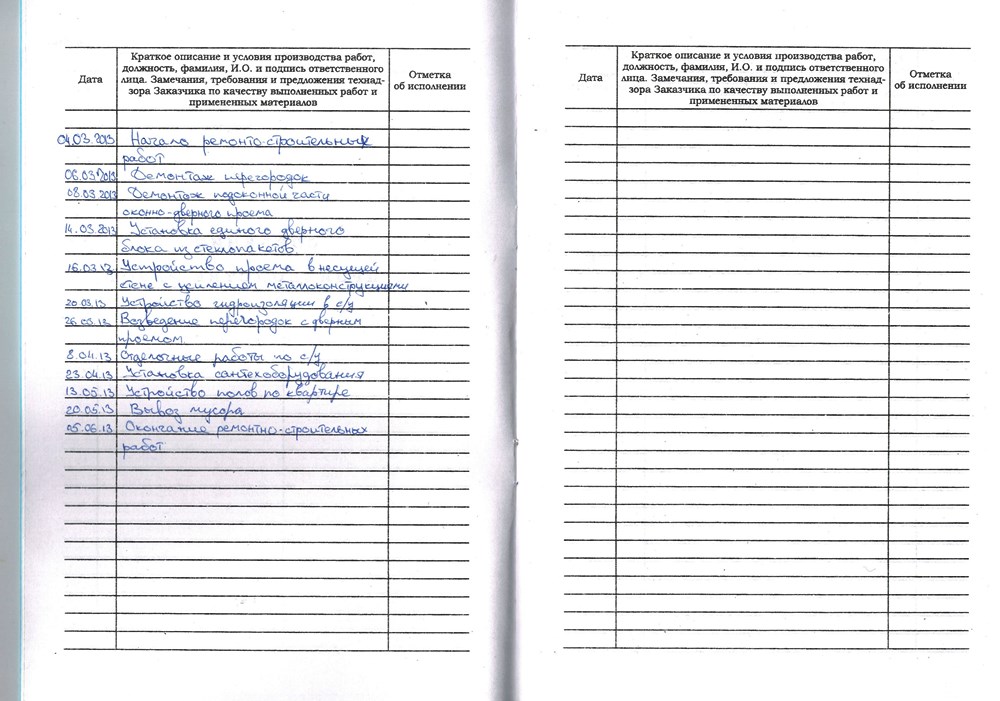 Дата
Краткое описание и условия производства работ,
должность, фамилия, И.О. и подпись ответственного
лица. Замечания, требования и предложения технад-
зора Заказчика по качеству выполненных работ и
примененных материалов
Отметка
об исполнении
04.03.2013 Начало ремонто-строительных
работ
06.03.2013 Демонтаж перегородок
08.03.2013 Демонтаж подоконной части
оконно-дверного проема
14.03.2013 Установка единого дверного
блока из стеклопакетов
16.03.13 Устройство проема в несущей
стене с усилением металлоконструкциями
20.03.13 Устройство гидроизоляции в с/у
26.03.13 Возведение перегородок с дверным
проемом
8.04.13 Отделочные работы по с/у
23.04.13 Установка сантехоборудования
13.05.13 Устройство полов по квартире
20.05.13 Вывоз мусора
05.06.13 Окончание ремонтно-строительных
работ
Дата
Краткое описание и условия производства работ,
должность, фамилия, И.О. и подпись ответственного
лица. Замечания, требования и предложения технад-
зора Заказчика по качеству выполненных работ и
примененных материалов
Отметка
об исполнении